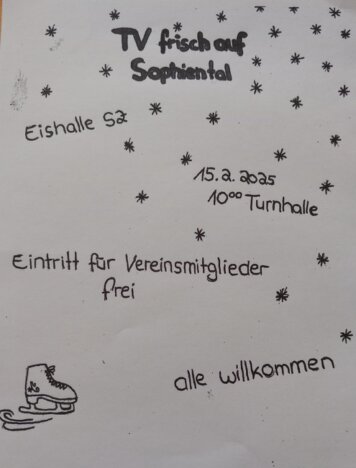 TV frisch auf
Sophiental
Eishalle SZ
15.2.2025
10⁰⁰ Turnhalle
Eintritt für Vereinsmitglieder
frei
alle willkommen